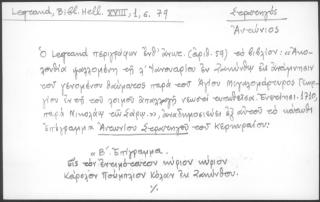 Legrand, Bibl. Hell. XVIII, 1, σ. 79
Στρατηγός
Ἀντώνιος
Ὁ Legrand περιγράφων ἐνθ' ἀνωτ. (ἀριθ. 59) τὸ βιβλίον: "Ἀκο-
λουθία ψαλλομένη τῇ λ' Ἰανουαρίου ἐν Ζακύνθῳ εἰς ἀνάμνησιν
τοῦ γενομένου θαύματος παρὰ τοῦ Ἁγίου Μεγαλομάρτυρος Γεωρ-
γίου ἐν τῇ τοῦ λοιμοῦ ἀπαλλαγῇ Ἐνετίησι, 1710,
παρὰ Νικολάῳ τῷ Σάρῳ.», ἀναδημοσιεύει ἐξ αὐτοῦ τὸ κάτωθι
ἐπίγραμμα Ἀντωνίου Στρατηγοῦ τοῦ Κερκυραίου:
"Β' Ἐπίγραμμα.
Εἰς τὸν ἐντιμότατον κύριον κύριον
Κάρολον Πούμπλιον Κόλαν ἐν Ζακύνθου.
./.